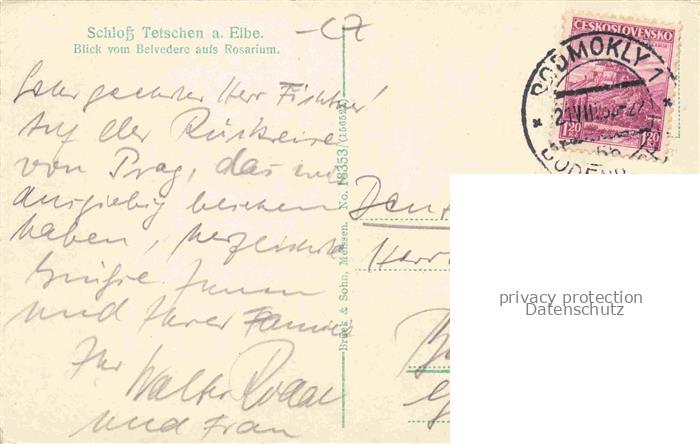 Schloß Tetschen a. Elbe.
Blick vom Belvedere aufs Rosarium.
Sehr geehrter Herr Fichtner!
Auf der Rückreise
von Prag, das wir
ausgiebig besehen
haben, herzlichste
Grüße Ihnen
und Ihrer Familie
Ihr
Walter
und Frau
Brück & Sohn, Meissen. No. 18353/(15652)
ČESKOSLOVENSKO
1.20 1.20
PODMOKLY 1
Herr
privacy protection
Datenschutz